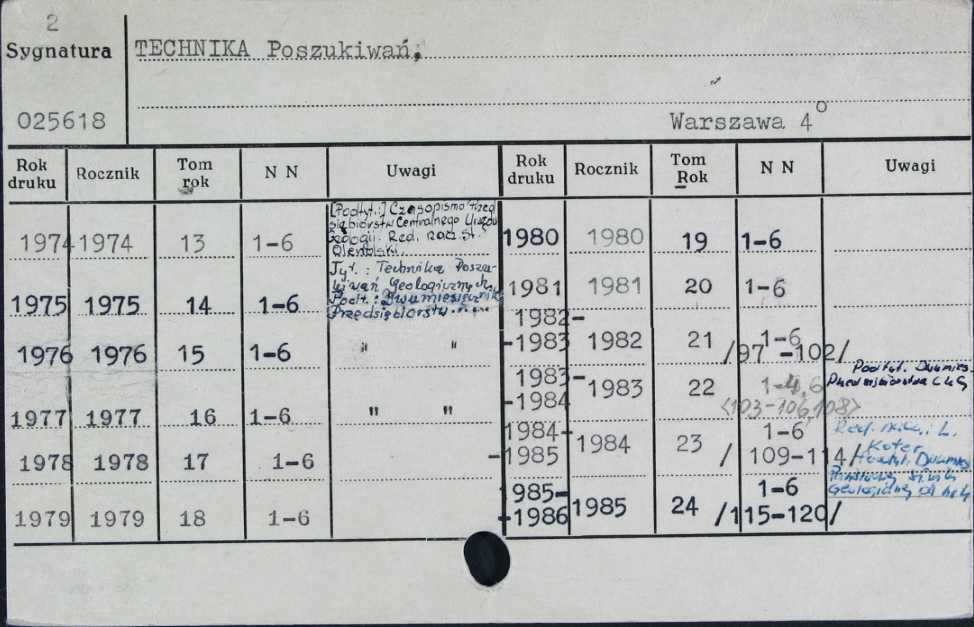 2
Sygnatura TECHNIKA Poszukiwań,
025618 Warszawa 4°
Rok druku Rocznik Tom rok N N Uwagi Rok druku Rocznik Tom Rok N N Uwagi
1974 1974 13 1-6
[Podtyt.:] Czasopismo Przed
siębiorstw Centralnego Urzędu
Geologii. Red. nacz. St.
1975 1975 14 1-6
Tyt.: Technika Poszu-
kiwań Geologicznych.
Podt.: Dwumiesięcznik
Przedsiębiorstw
1976 1976 15 1-6 " "
1977 1977 16 1-6 " "
1978 1978 17 1-6
1979 1979 18 1-6
1980 1980 19 1-6
1981 1981 20 1-6
1982-
-1983 1982 21 1-6
/97 -102/
1983-
-1984 1983 22 1-4,6
<103-106,108>
Podtyt. Dwumies.
1984-
-1985 1984 23 1-6
/ 109-114/
Red. L.
Koter
Podtyt. Dwumies
1985-
-1986 1985 24 1-6
/115-120/